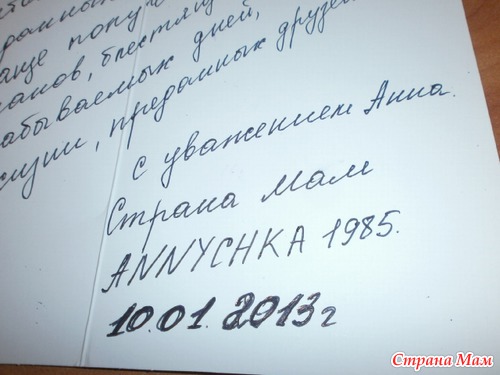 чаще получ
анов, блестящ
абываемых дней,
изни, преданных друзей
с уважением Анна.
Страна Мам
ANNYCHKA 1985.
10.01.2013г
Страна Мам